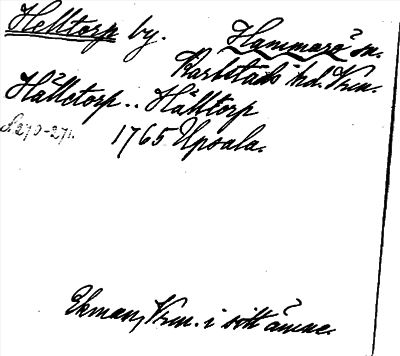 Helltorp by. Hammarö sn.
Karlstads hd. Vrm.
Hälletorp .. Hälltorp
S. 270-271. 1765 Upsala.
Ekman, Vrm. i sitt ämne.